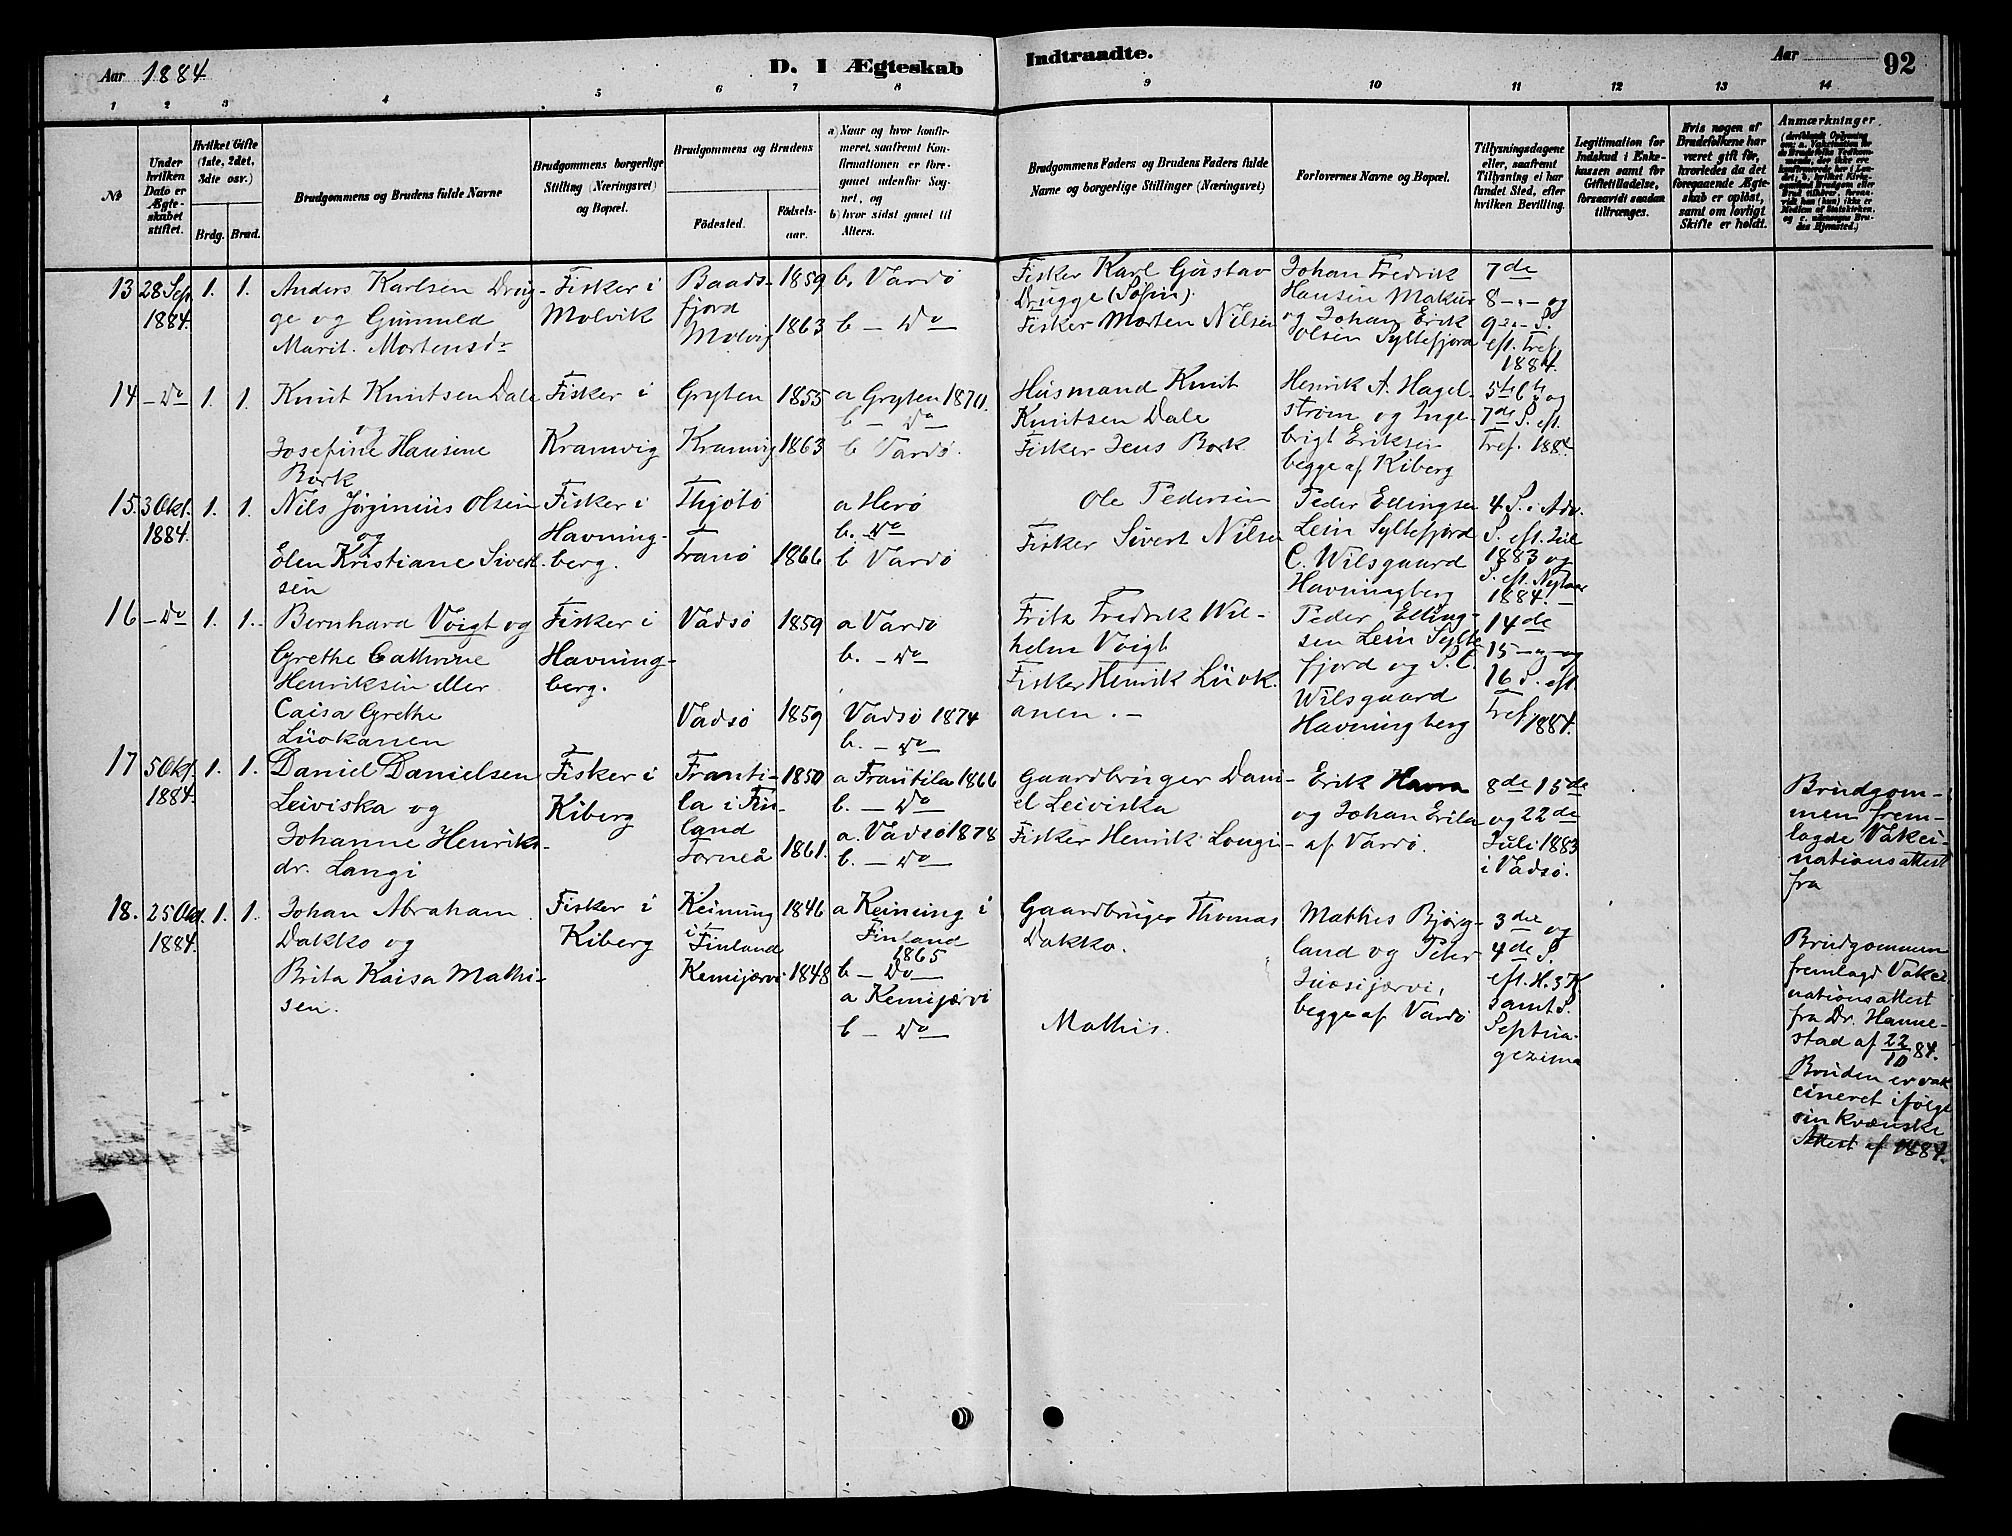 Aar 1884
D. I Ægteskab
Indtraadte.
Aar
92
1 2 3 4 5 6 7 8 9 10 11 12 13 14
№
Under hvilken Dato er Ægteskabet stiftet.
Hvilket Gifte (1ste, 2det, 3die osv.)
Brdg. Brud.
Brudgommens og Brudens fulde Navne
Brudgommens borgerlige Stilling (Næringsvei) og Bopæl.
Brudgommens og Brudens
Födested.
Födselsaar.
a) Naar og hvor konfirmeret, saafremt Konfirmationen er foregaaet udenfor Sognet, og
b) hvor sidst gaaet til Alters.
Brudgommens Faders og Brudens Faders fulde Navne og borgerlige Stillinger (Næringsvei)
Forlovernes Navne og Bopæl.
Tillysningsdagene eller, saafremt Tillysning ei har fundet Sted, efter hvilken Bevilling.
Legitimation for Indskud i Enkekassen samt for Giftetilladelse, forsaavidt saadan tiltrænges.
Hvis nogen af Brudefolkene har været gift för, hvorledes da det foregaaende Ægteskab er oplöst, samt om lovligt Skifte er holdt.
Anmærkninger
13 28 Sep. 1884. 1. 1.
Anders Karlsen Drug-
ge og Gunnuld
Marit. Mortensdr
Fisker i
Molvik
Baads-
fjord
Molvig
1859
1863
b. Vardö
b – Do
Fisker Karl Gustav
Drugge (Söfin).
Fisker Morten Nilsen
Johan Fredrik
Hansen Makur
og Johan Erik
Olsen Syltefjord
7de
8 –„– og
9 –„– S.
eft. Tref.
1884.
14 – Do 1. 1.
Knut Knutsen Dale
og
Josefine Hansine
Bork
Fisker i
Kramvig
Gryten
Kramvig
1855
1863
a Gryten 1870.
b – Do
b Vardö.
Husmand Knut
Knutsen Dale
Fisker Jens Bork
Henrik A. Hagel-
ström og Inge-
brigt Eriksen
begge af Kiberg
5te 6te og
7de S. eft.
Tref. 1884
15. 3 Okt. 1884. 1. 1.
Nils Jörginius Olsen
og
Elen Kristiane Sivert-
sen
Fisker i
Havning-
berg.
Thjötö
Tranö
1866
a Herö
b. Do
b Vardö
Ole Pedersen
Fisker Sivert Nilsen
Peder Edingsen
Lein Syltefjord
C. Wilsgaard
Havningberg
4 S. i Adv.
S. eft. Jul
1883 og
S. eft. Nytaar
1884. –
16 – Do 1. 1.
Bernhard Voigt og
Grethe Cathrine
Henriksen eller
Caisa Grethe
Luokanen
Fisker i
Havning-
berg.
Vadsö
Vadsö
1859
1859
a Vardö
b. – Do
Vadsö 1874
b. – Do
Fritz Fredrik Wil-
helm Voigt
Fisker Henrik Luok-
anen. –
Peder Elling-
sen Lein Sylte
fjord og P. C.
Wilsgaard
Havningberg
14de
15 –„– og
16 S. eft.
Tref 1884.
17 5 Okt. 1884. 1. 1.
Daniel Danielsen
Leiviska og
Johanne Henriks-
dr. Langi
Fisker i
Kiberg
Franti-
la i Fin-
land
Torneå
1850
1861.
a Frantila 1866
b. – Do
a. Vadsö 1878
b. – Do
Gaardbruger Dani-
el Leiviska
Fisker Henrik Longi-
Erik Havna
og Johan Erila
af Vardö.
8de 15de
og 22de
Juli 1883
i Vadsö.
Brudgom-
men frem-
lagde Vakci-
nationsattest
fra
18. 25 Okt. 1884. 1. 1.
Johan Abraham
Dakko og
Brita Kaisa Mathi-
sen.
Fisker i
Kiberg
Keining
i Finland
Kemijærvi
1846
1848
a Keining i
Finland
1865
b – Do
a Kemijærvi
b – Do
Gaardbruger Thomas
Dakko.
Mathis.
Mathis Björg-
land og Peter
Juosijærvi,
begge af Vardö
3die og
4de S.
eft. H. 3 K
samt S.
Septua-
gezima
Brudgommen
fremlagd Vakci
nationsattest
fra Dr. Hanne-
stad af 22/10 84.
Bruden er vak
cineret ifölge
sin kvænske
Attest af 1884.